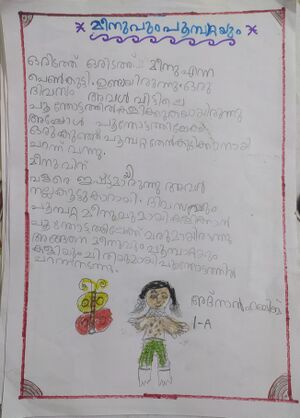 മീനുവും പൂമ്പാറ്റയും
ഒരിടത്ത് ഒരിടത്ത് മീനു എന്ന
പെൺകുട്ടി ഉണ്ടായിരുന്നു ഒരു
ദിവസം അവൾ വീട്ടിലെ
പൂന്തോട്ടത്തിൽ കളിക്കുകയായിരുന്നു
അപ്പോൾ പൂന്തോട്ടത്തിലേക്ക്
ഒരു കുഞ്ഞൻ പൂമ്പാറ്റ തേൻ കുടിക്കാനായി
പറന്ന് വന്നു.
മീനുവിന്
വളരെ ഇഷ്ടമായിരുന്നു അവർ
നല്ല കൂട്ടുകാരായി. ദിവസവും
പൂമ്പാറ്റ മീനുവുമായി കളിക്കാൻ
പൂന്തോട്ടത്തിലേക്ക് വരുമായിരുന്നു
അങ്ങനെ മീനുവും പൂമ്പാറ്റയും
കളിയും ചിരിയുമായി പൂന്തോട്ടത്തിൽ
പറന്നു നടന്നു.
1-A